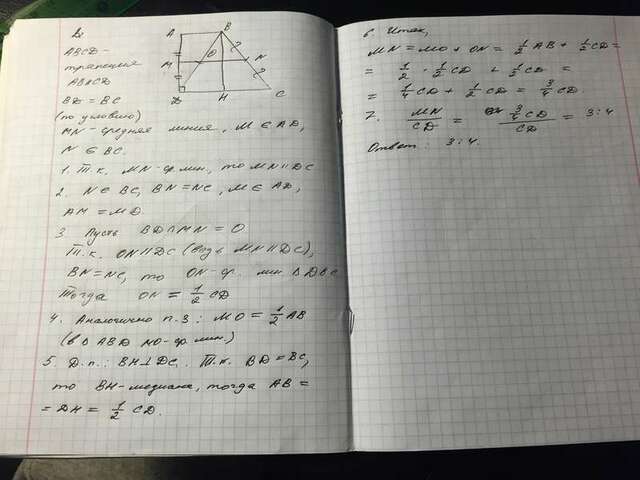 Дz
A
B
ABCD -
трапеция
M
O
N
AB∥CD
D
H
C
BD = BC
(по условию)
MN - средняя линия, M ∈ AD,
N ∈ BC.
1. Т.к. MN - ср. лин, то MN ∥ DC
2. N ∈ BC, BN = NC, M ∈ AD,
AM = MD
3 Пусть BD ∩ MN = O
Т.к. ON ∥ DC (ведь MN ∥ DC),
BN = NC, то ON - ср. лин △ DBC
Тогда ON = 1/2 CD
4. Аналогично п.3: MO = 1/2 AB
(в △ ABD MO - ср. лин.)
5. Д.п.: BH ⊥ DC. Т.к. BD = BC,
то BH - медиана, тогда AB =
= DH = 1/2 CD.
6. Итак,
MN = MO + ON = 1/2 AB + 1/2 CD =
= 1/2 · 1/2 CD + 1/2 CD =
= 1/4 CD + 1/2 CD = 3/4 CD.
7. MN/CD = 3/4 CD / CD = 3:4
Ответ: 3:4.